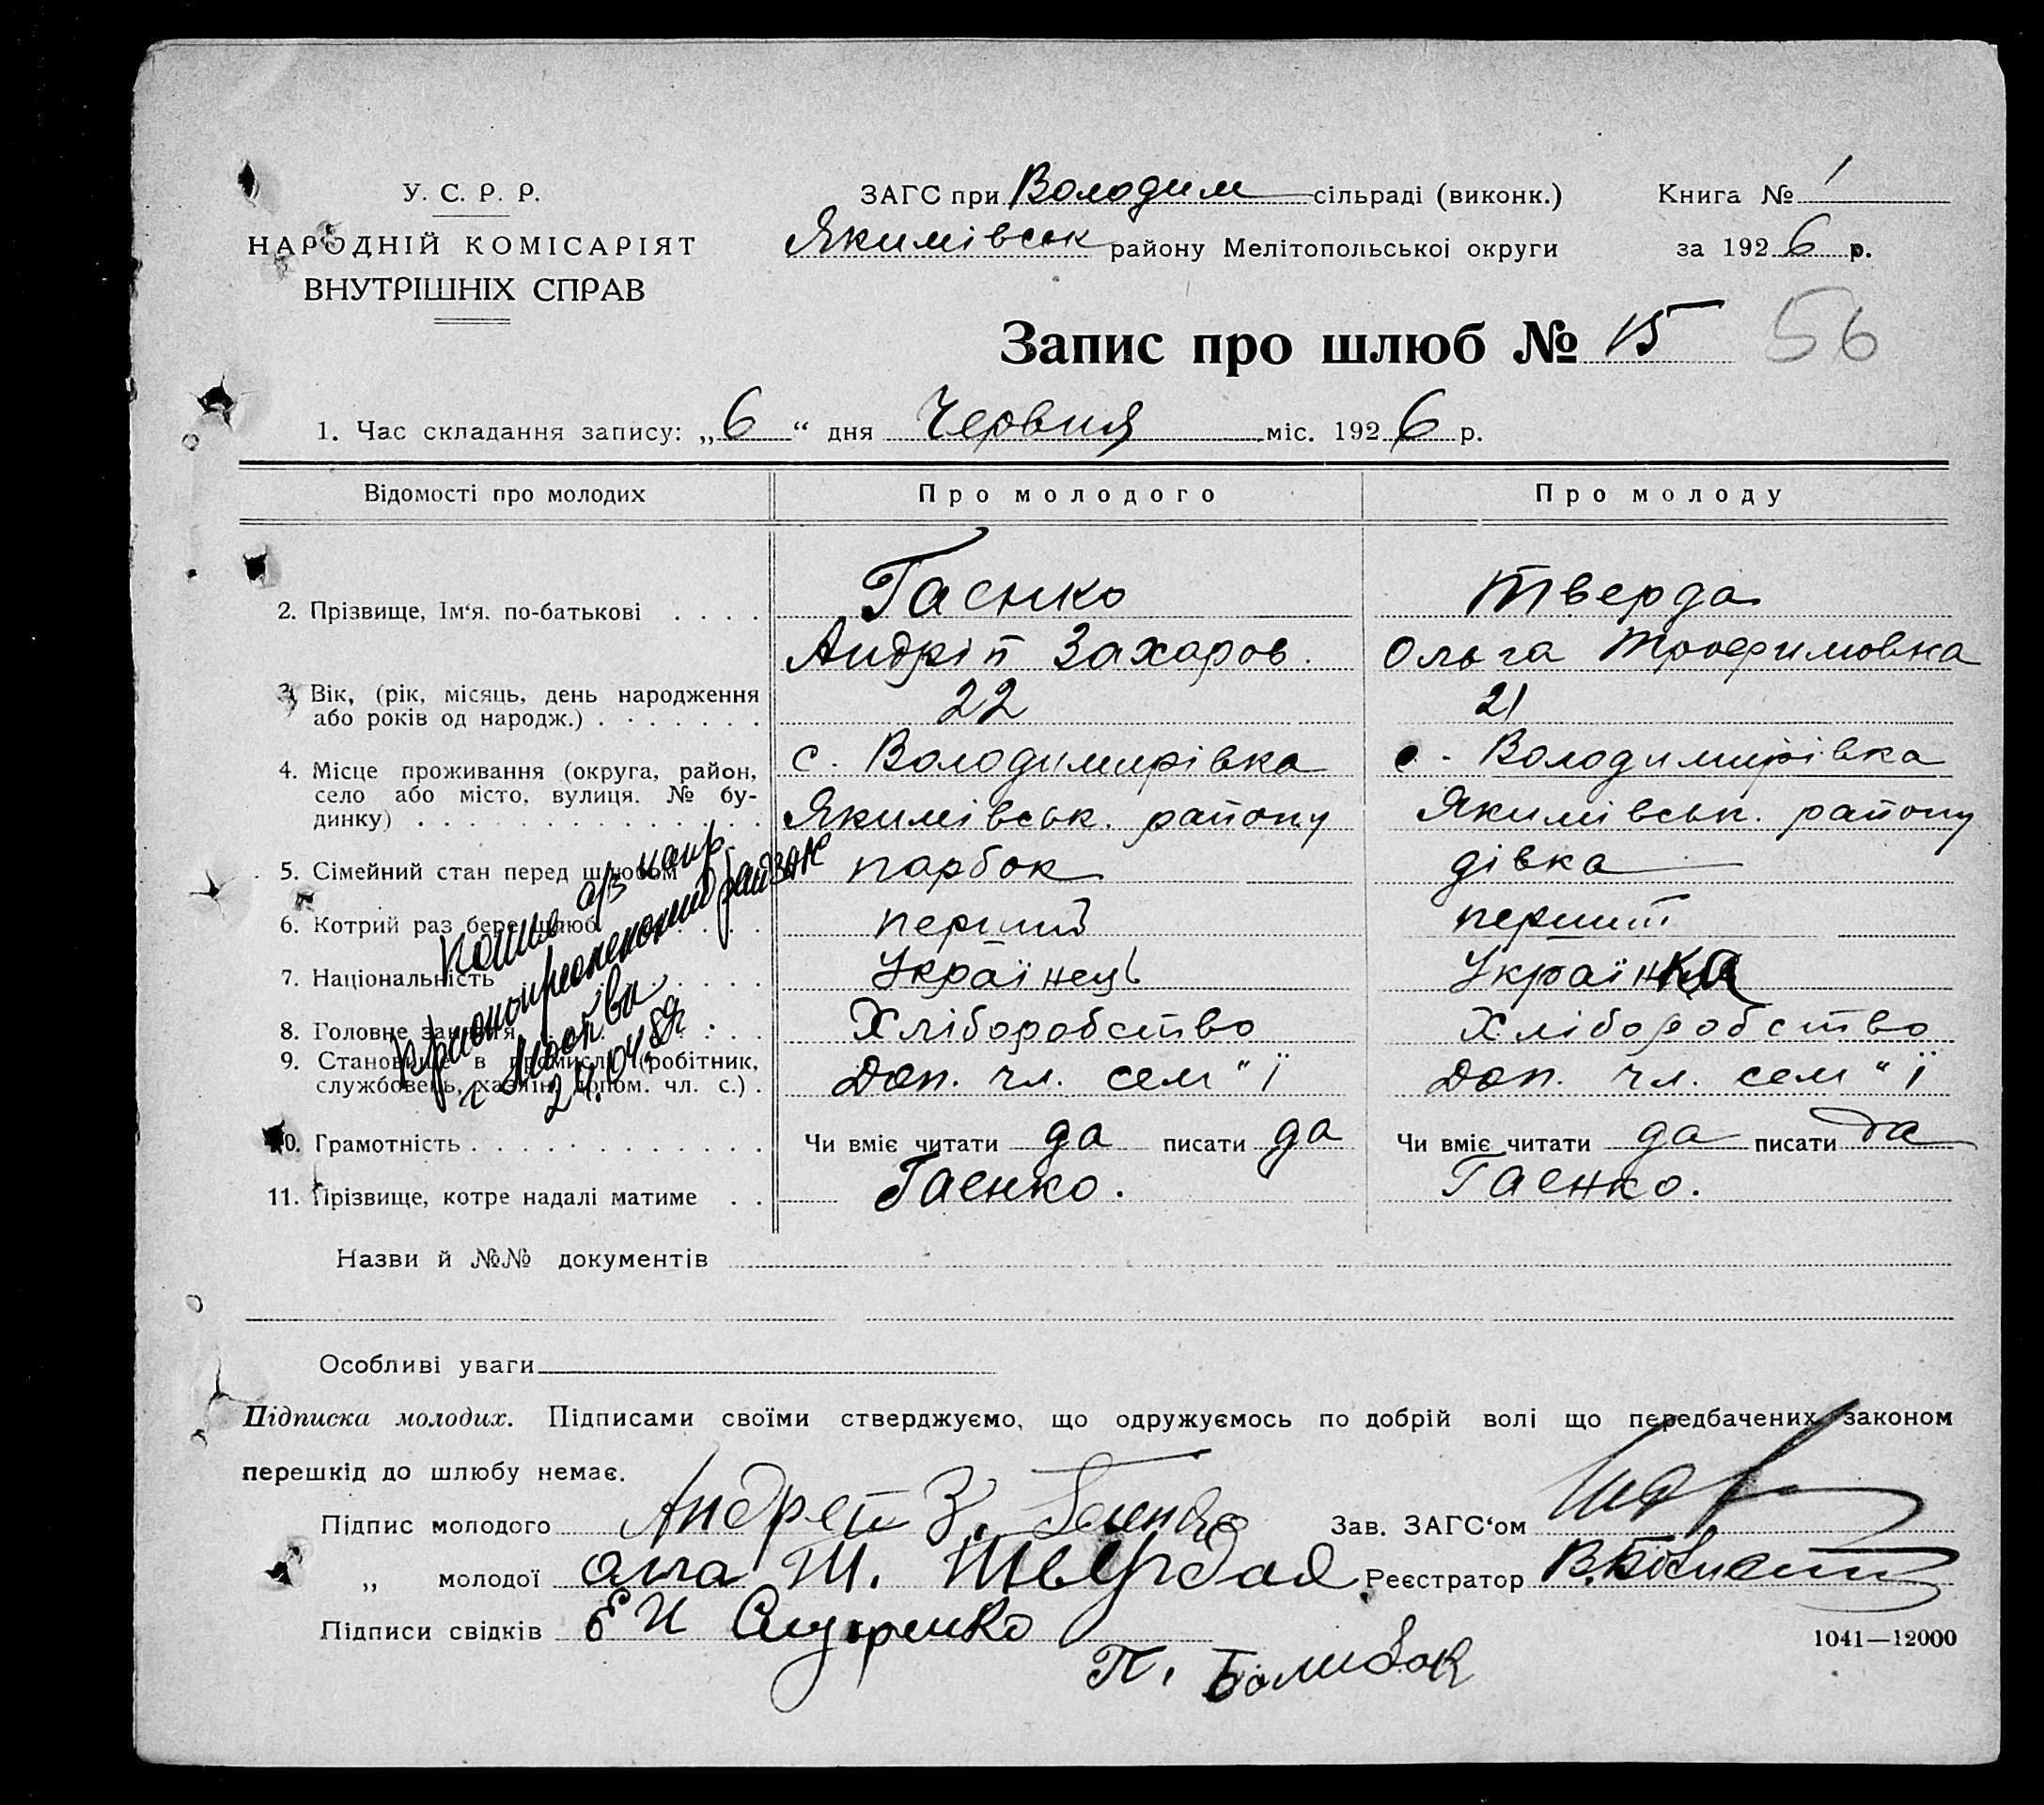 У. С. Р. Р.
НАРОДНІЙ КОМІСАРІЯТ
ВНУТРІШНІХ СПРАВ
ЗАГС при Володим сільраді (виконк.)
Якимівськ району Мелітопольської округи
Книга № 1
за 1926 р.
Запис про шлюб № 15 56
1. Час складання запису: „6“ дня Червня міс. 1926 р.
Відомості про молодих Про молодого Про молоду
2. Прізвище, Ім‘я. по-батькові . . . . Гаєнко Тверда
Андрій Захаров. Ольга Трофимовна
3. Вік, (рік, місяць, день народження
або років од народж.) . . . . . . . 22 21
4. Місце проживання (округа, район, с. Володимирівка с. Володимирівка
село або місто, вулиця. № бу-
динку) . . . . . . . . . . . . . . Якимівськ. району Якимівськ. району
5. Сімейний стан перед шлюбом парбок дівка
6. Котрий раз бере шлюб . . . . перший перший
7. Національність . . . . Українець Українка
8. Головне заняття . . . Хліборобство Хліборобство
9. Становище в промислі (робітник,
службовець, хазяїн, допом. чл. с.) . Доп. чл. сем"ї Доп. чл. сем"ї
10. Грамотність . . . . . . . . . . . . Чи вміє читати да писати да Чи вміє читати да писати да
11. Прізвище, котре надалі матиме . . Гаєнко. Гаєнко.
Копия с/з напр.
Краснопресненский райЗАГС
г Москвы
24.04.89г
Назви й №№ документів
Особливі уваги
Підписка молодих. Підписами своїми стверджуємо, що одружуємось по добрій волі що передбачених законом
перешкід до шлюбу немає.
Підпис молодого Андрей З. Гаенко Зав. ЗАГС‘ом
„ молодої Т. Твердая Реєстратор
Підписи свідків
П.
1041—12000